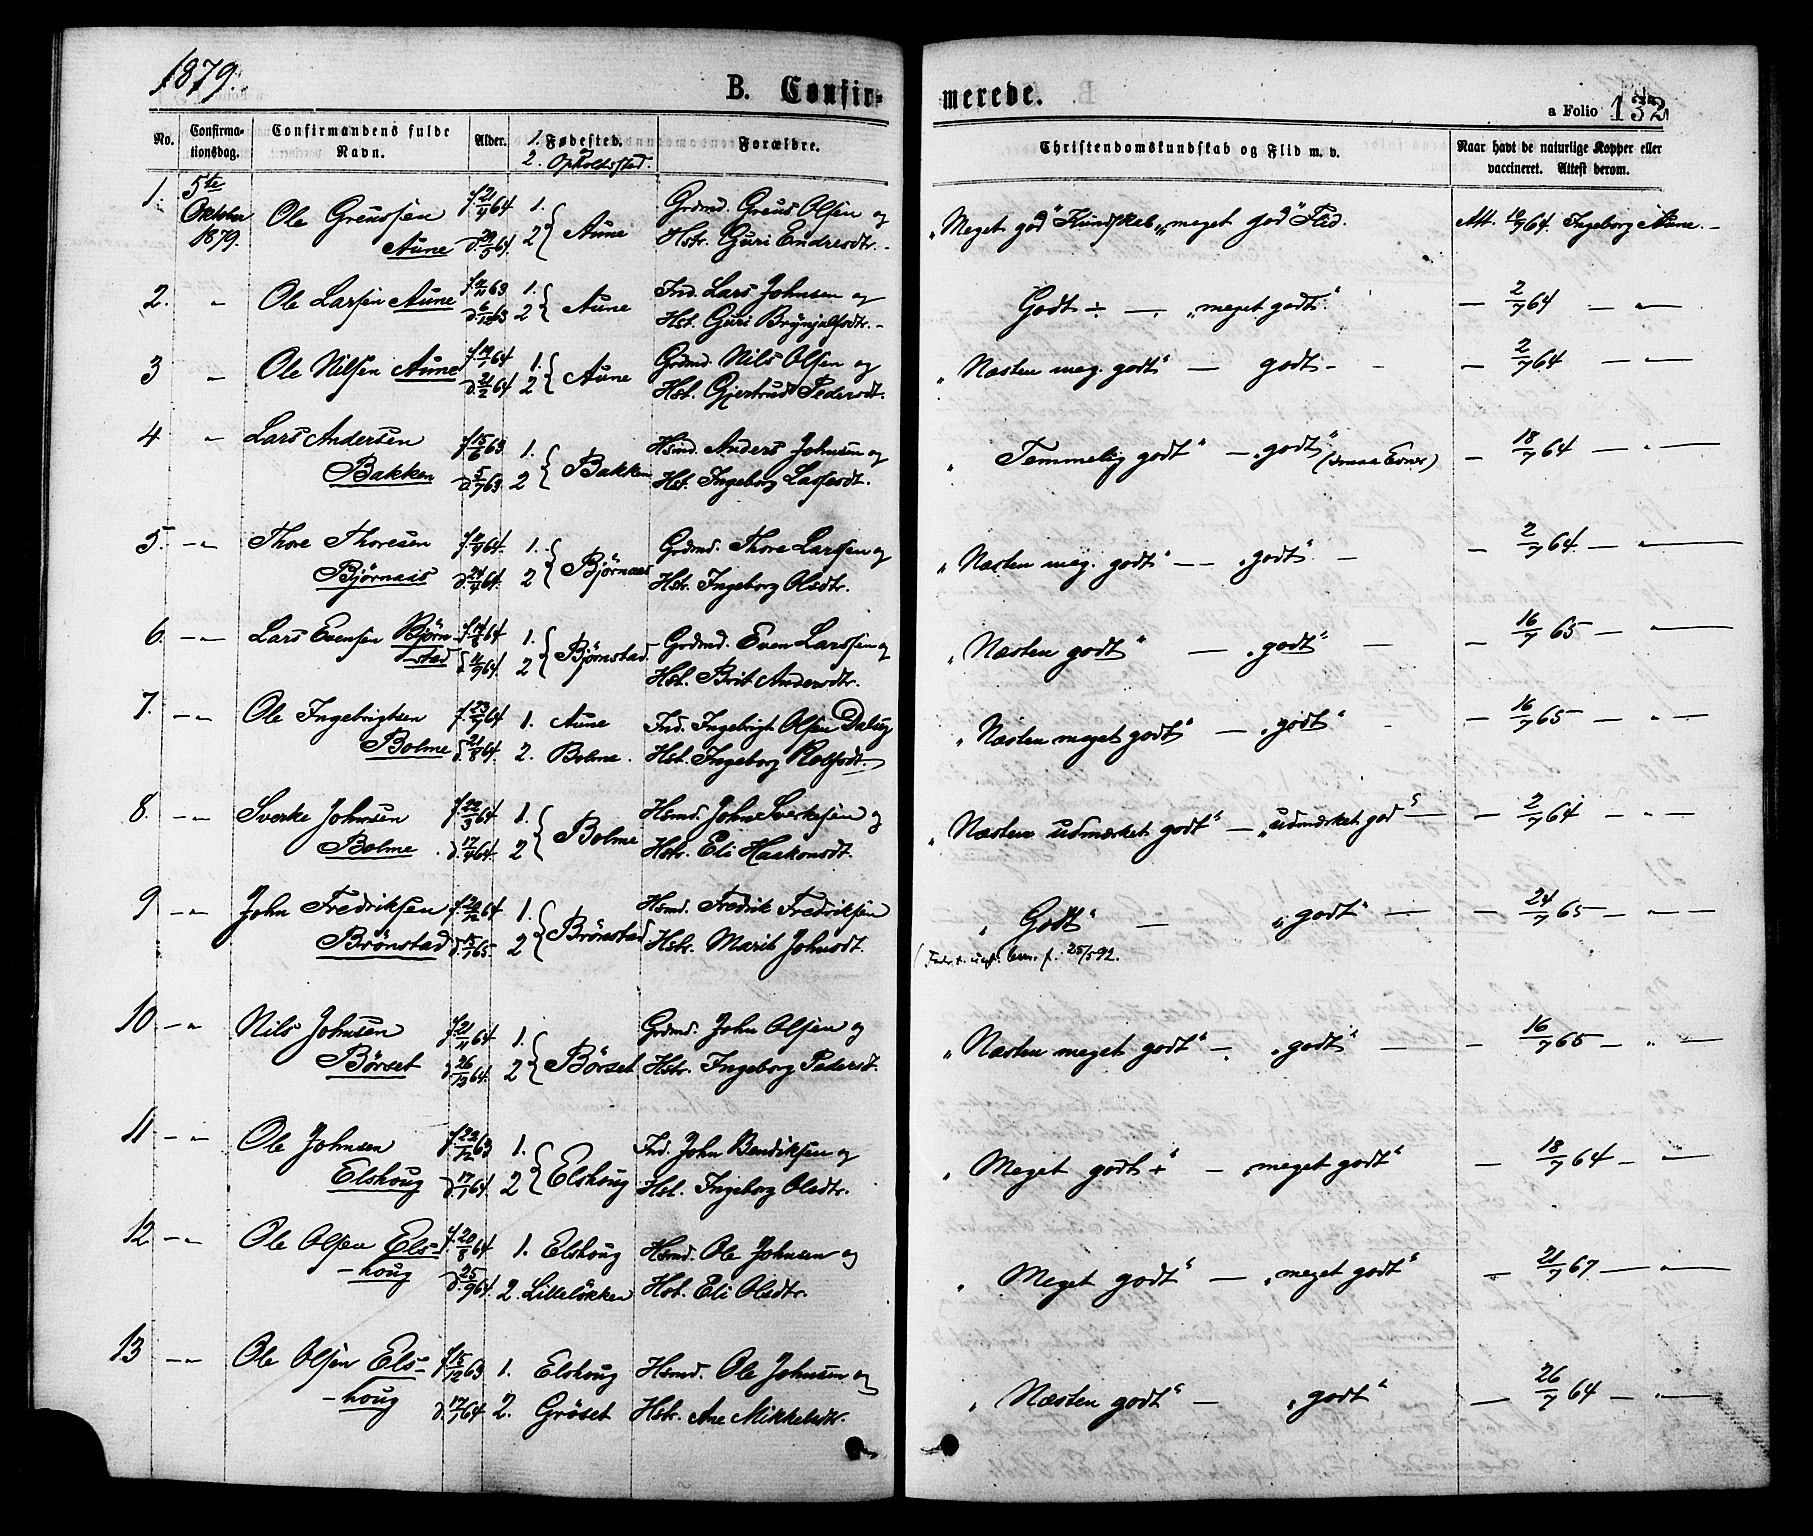 1879.
B. Confir-
merede.
a Folio 132
No.
Confirma-
tionsdag.
Confirmandens fulde
Navn.
Alder.
1. Fødested.
2. Opholdssted.
Forældre.
Christendomskundskab og Flid m. v.
Naar havt de naturlige Kopper eller
vaccineret. Attest derom.
1. 5te Oktober 1879. Ole Greussen Aune f. 21/4 64 d. 29/5 64. 1. 2 { Aune Grdmd. Greus Olsen og
Hstr. Guri Endresdtr.
"Meget god" Kundskab, "meget god" Flid. Att. 18/7 64. Ingeborg Aune.
2. " Ole Larsen Aune 1. 2 { Aune Ind. Lars Johnsen og
Hst. Guri Brynjulfsdtr.
Godt ÷ — "meget godt". — 2/7 64 — " —
3 " Ole Nilsen Aune f. 19/1 64 d. 21/2 64 1. 2 { Aune Grdmd. Nils Olsen og
Hst. Gjertrud Pedersdt.
"Næsten meg. godt" — godt - — 2/7 64 — " —
4 " Lars Andersen Bakken f. 15/6 63 d. 5/7 63. 1. 2 { Bakken Hsmd. Anders Johnsen og
Hst. Ingeborg Larsesdt.
" Temmelig godt" — "godt" (smaa Evner) — 18/7 64 — " —
5. — " Thore Thoresen Bjørnaas d. 24/4 64. 1. 2 { Bjørnaas Grdmd. Thore Larsen og
Hstr. Ingeborg Olsdtr.
"Næsten meg. godt" — — "godt" — — 2/7 64 — " —
6. — " Lars Evensen Bjørn-
stad f. 14/8 64 d. 11/9 64. 1. 2 { Bjørnstad. Grdmd. Even Larssen og
Hst. Brit Andersdtr.
"Næsten godt" — "godt" — — 16/7 65 — " —
7. — " Ole Ingebrigtsen Bolme f. 23/7 64 d. 21/8 64. 1. Aune
2. Bolme. Ind. Ingebrigt Olsen Dalseg
Hst. Ingeborg Rolfsdt.
"Næsten meget godt" — "godt" — 16/7 65 — " —
8. — " Sverke Johnsen Bolme f. 22/3 64 d. 17/4 64. 1. 2 { Bolme Hsmd. John Sverkesen og
Hstr. Eli Haakonsdt.
"Næsten udmærket godt" — "udmærket god" — 2/7 64 — " —
9 — " John Fredriksen Brønstad f. 20/12 64 d. 15/1 65. 1. 2 { Brønstad Hsmd. Fredrik Fredriksen
Hstr. Marit Johnsdt.
" Godt" — "godt" — — 24/7 65 — " —
25/5 92.
10 — " Nils Johnsen Børset f. 21/11 64 d. 26/12 64. 1. 2 { Børset Grdmd. John Olsen og
Hstr. Ingeborg Pedersdt.
"Næsten meget godt" — "godt" — — 16/7 65 — " —
11 — " Ole Johnsen Elshoug f. 22/12 63 d. 17/1 64. 1. 2 { Elshoug Ind. John Bendiksen og
Hst. Ingeborg Olsdtr.
" Meget godt ÷" — "meget godt" — 18/7 64 — " —
12 — " Ole Olsen Els-
houg f. 20/8 64 d. 25/9 64. 1. Elshoug
2. Lilleløkken Hsmd. Ole Johnsen og
Hst. Eli Olsdtr.
" Meget godt" — "meget godt" — 21/7 67 — " —
13 — " Ole Olsen Els-
houg f. 15/12 63 d. 17/1 64 1. Elshoug
2. Grøset Hsmd. Ole Johnsen og
Hstr. Ane Mikkelsdtr.
" Næsten godt" — "godt" — 26/7 64 — " —